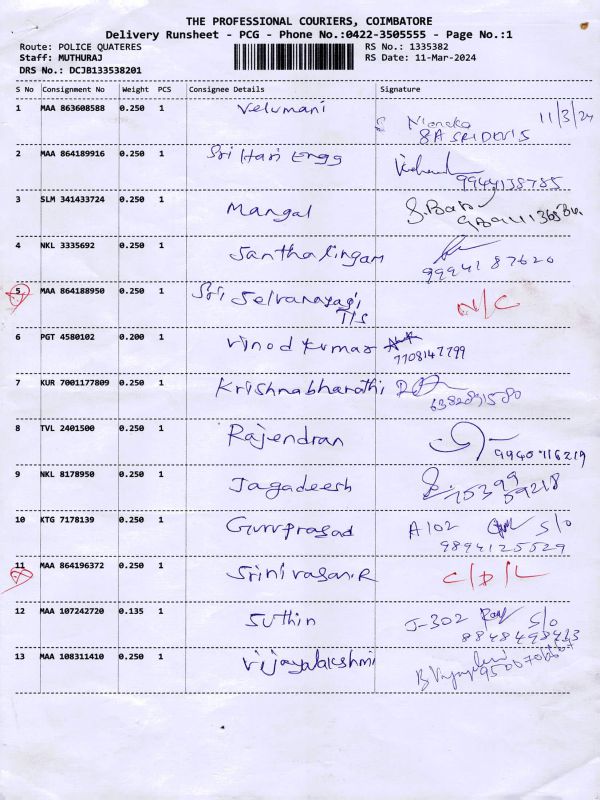 THE PROFESSIONAL COURIERS, COIMBATORE
Delivery Runsheet - PCG - Phone No.:0422-3505555 - Page No.:1
Route: POLICE QUATERES RS No.: 1335382
Staff: MUTHURAJ RS Date: 11-Mar-2024
DRS No.: DCJB133538201
S No Consignment No Weight PCS Consignee Details Signature
1 MAA 863608588 0.250 1 Velumani 11/3/24
8A SRIDEVIS
2 MAA 864189916 0.250 1 Sri Hari Engg
9944138785
3 SLM 341433724 0.250 1 Mangal S.Babu
4 NKL 3335692 0.250 1 Santhalingam
9994187620
5 MAA 864188950 0.250 1 Sri Selvanayagi N/C
T/S
6 PGT 4580102 0.200 1 Vinod Kumar
7708147799
7 KUR 7001177809 0.250 1 Krishnabharathi
6382891580
8 TVL 2401500 0.250 1 Rajendran
9940716219
9 NKL 8178950 0.250 1 Jagadeesh
75399
59218
10 KTG 7178139 0.250 1 Guruprasad A102 S/o
9894125529
11 MAA 864196372 0.250 1 Srinivasan.R C/D/L
12 MAA 107242720 0.135 1 Suthin J-302 S/o
13 MAA 108311410 0.250 1 Vijayalakshmi